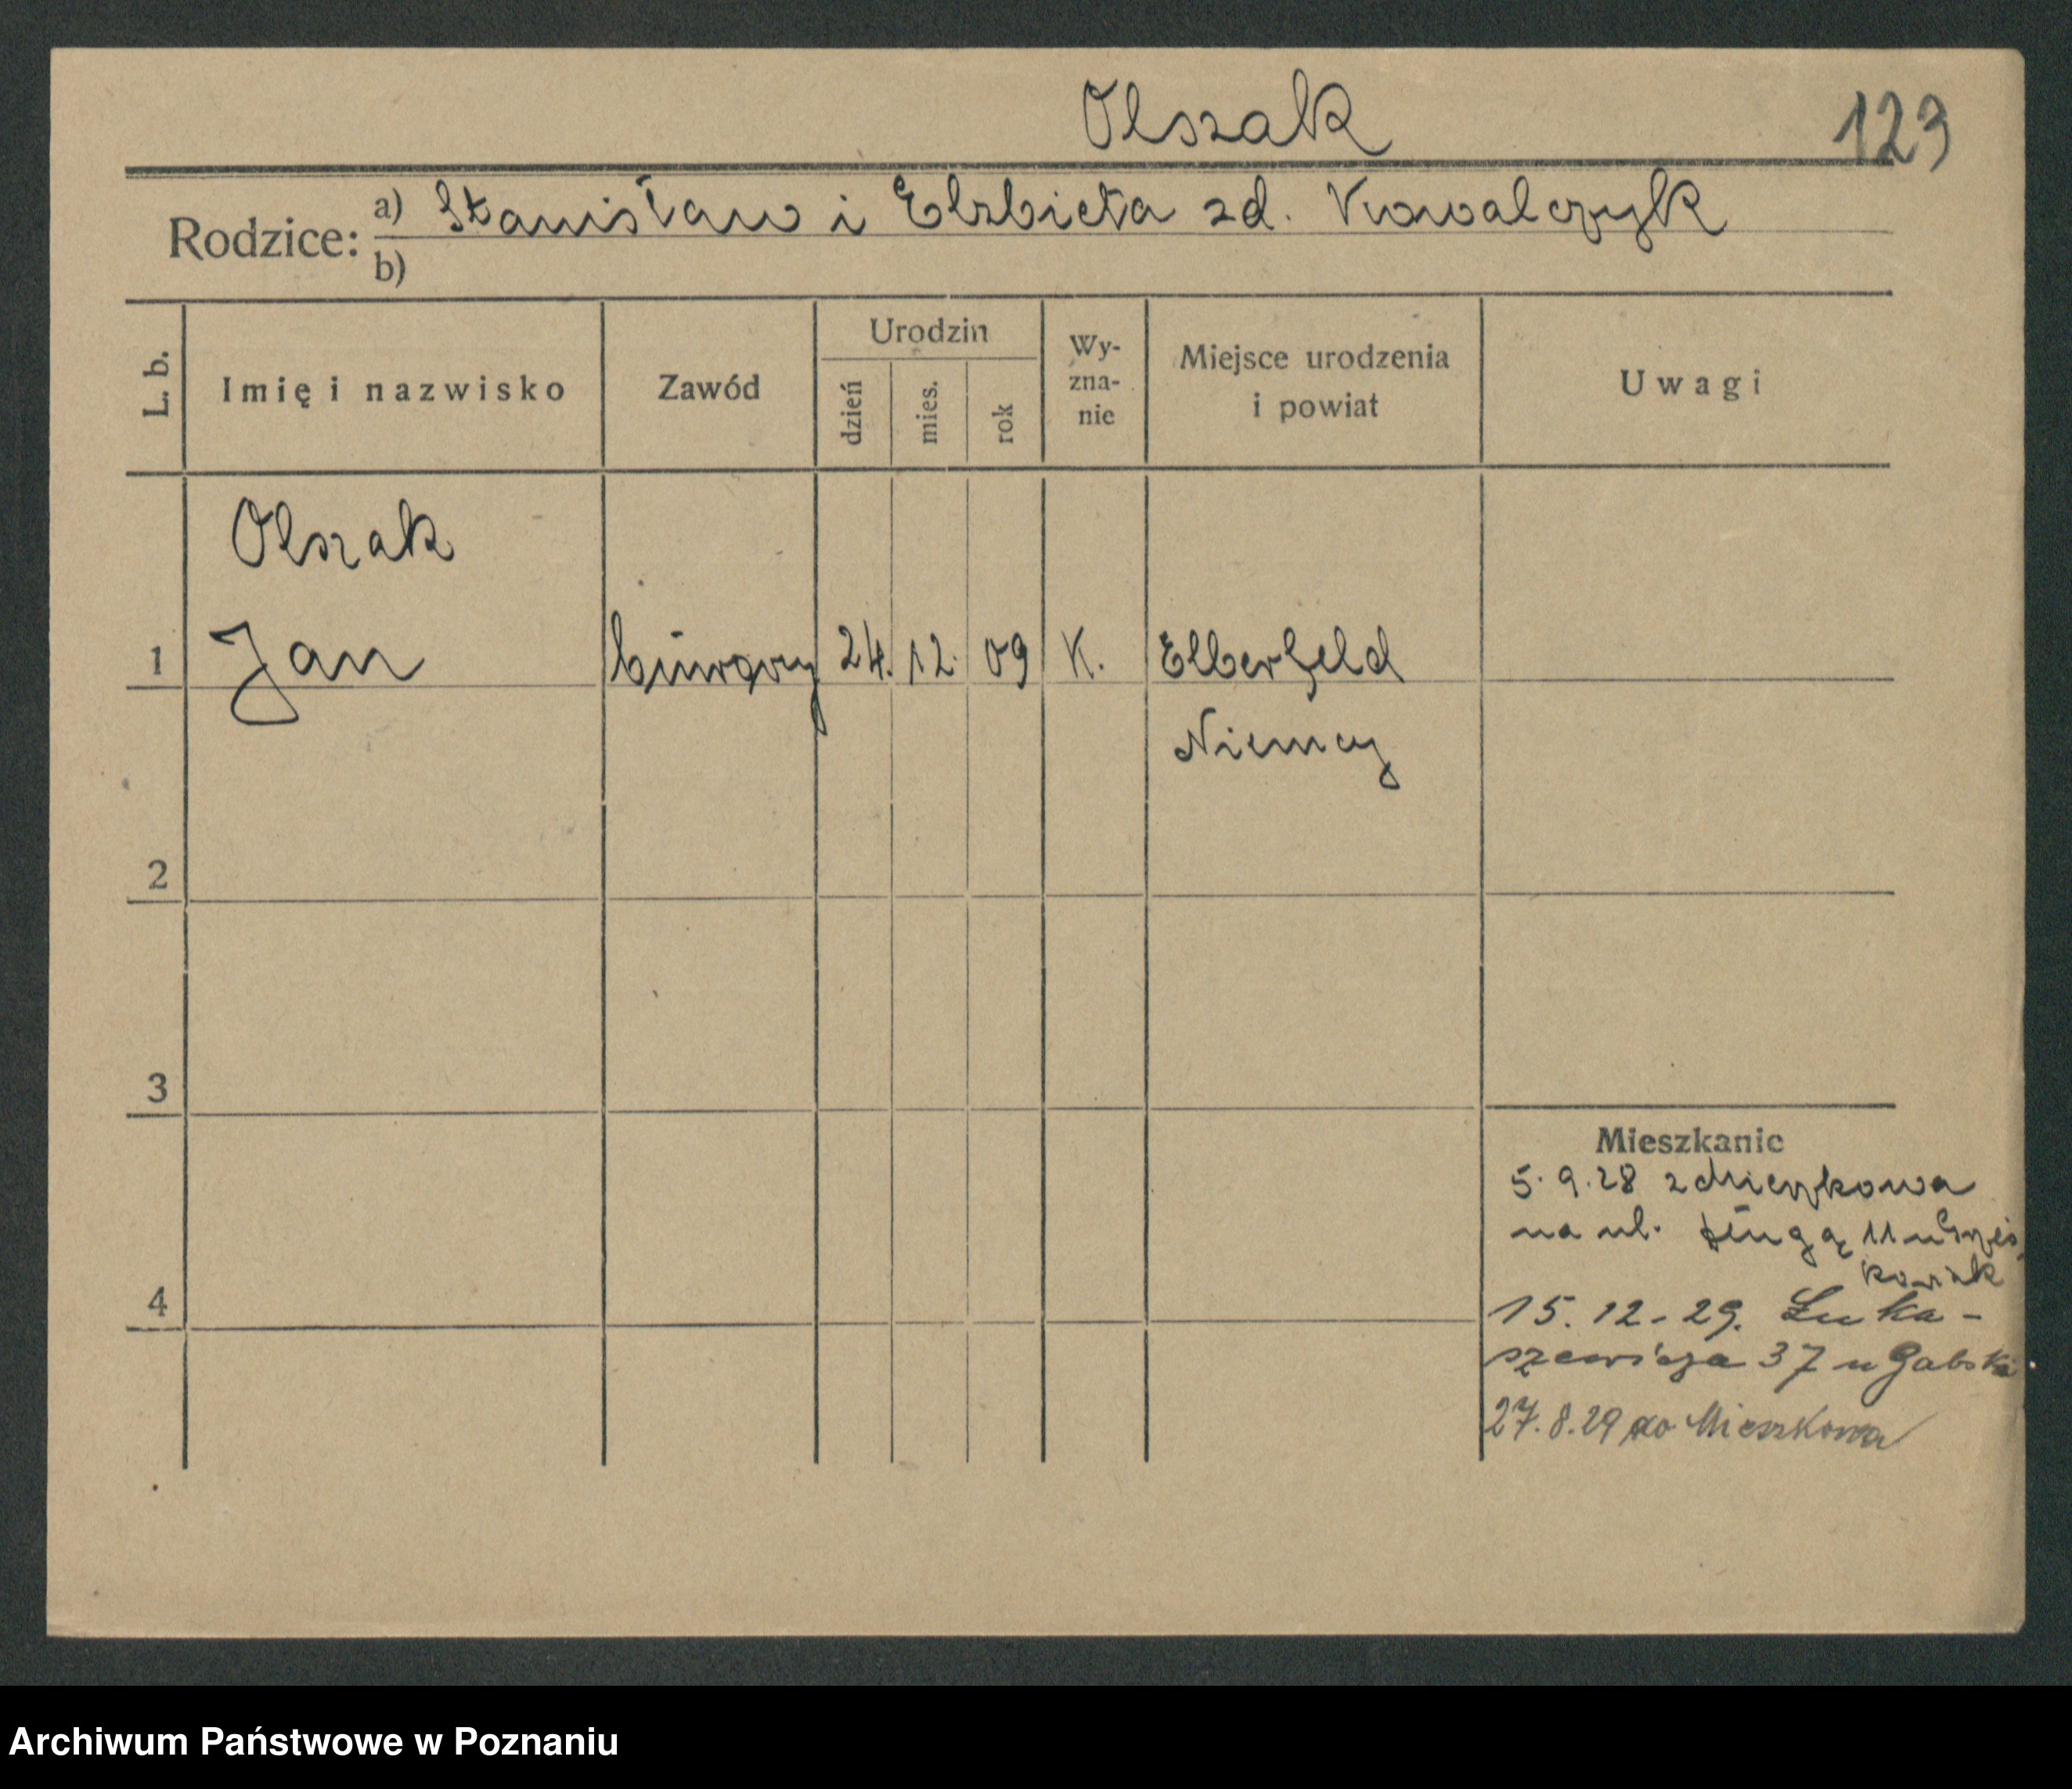 Olszak
123
Rodzice: a) Stanisław i Elżbieta zd. Kowalczyk
b)
L. b.
Imię i nazwisko
Zawód
Urodzin
dzień
mies.
rok
Wy-
zna-
nie
Miejsce urodzenia
i powiat
Uwagi
Olszak
1 Jan biurowy 24. 12. 09 K. Elberfeld
Niemcy
2
3
Mieszkanie
5.9.28 z
na ul. Długą 11 u
4
15.12.29. Łuka-
szewicza 37 u Gabski
27.8.29 do Mieszkowa
Archiwum Państwowe w Poznaniu